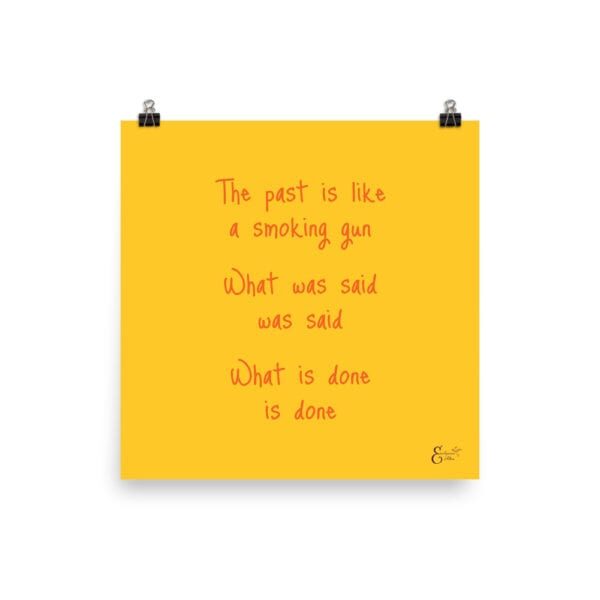 The past is like
a smoking gun
What was said
was said
What is done
is done